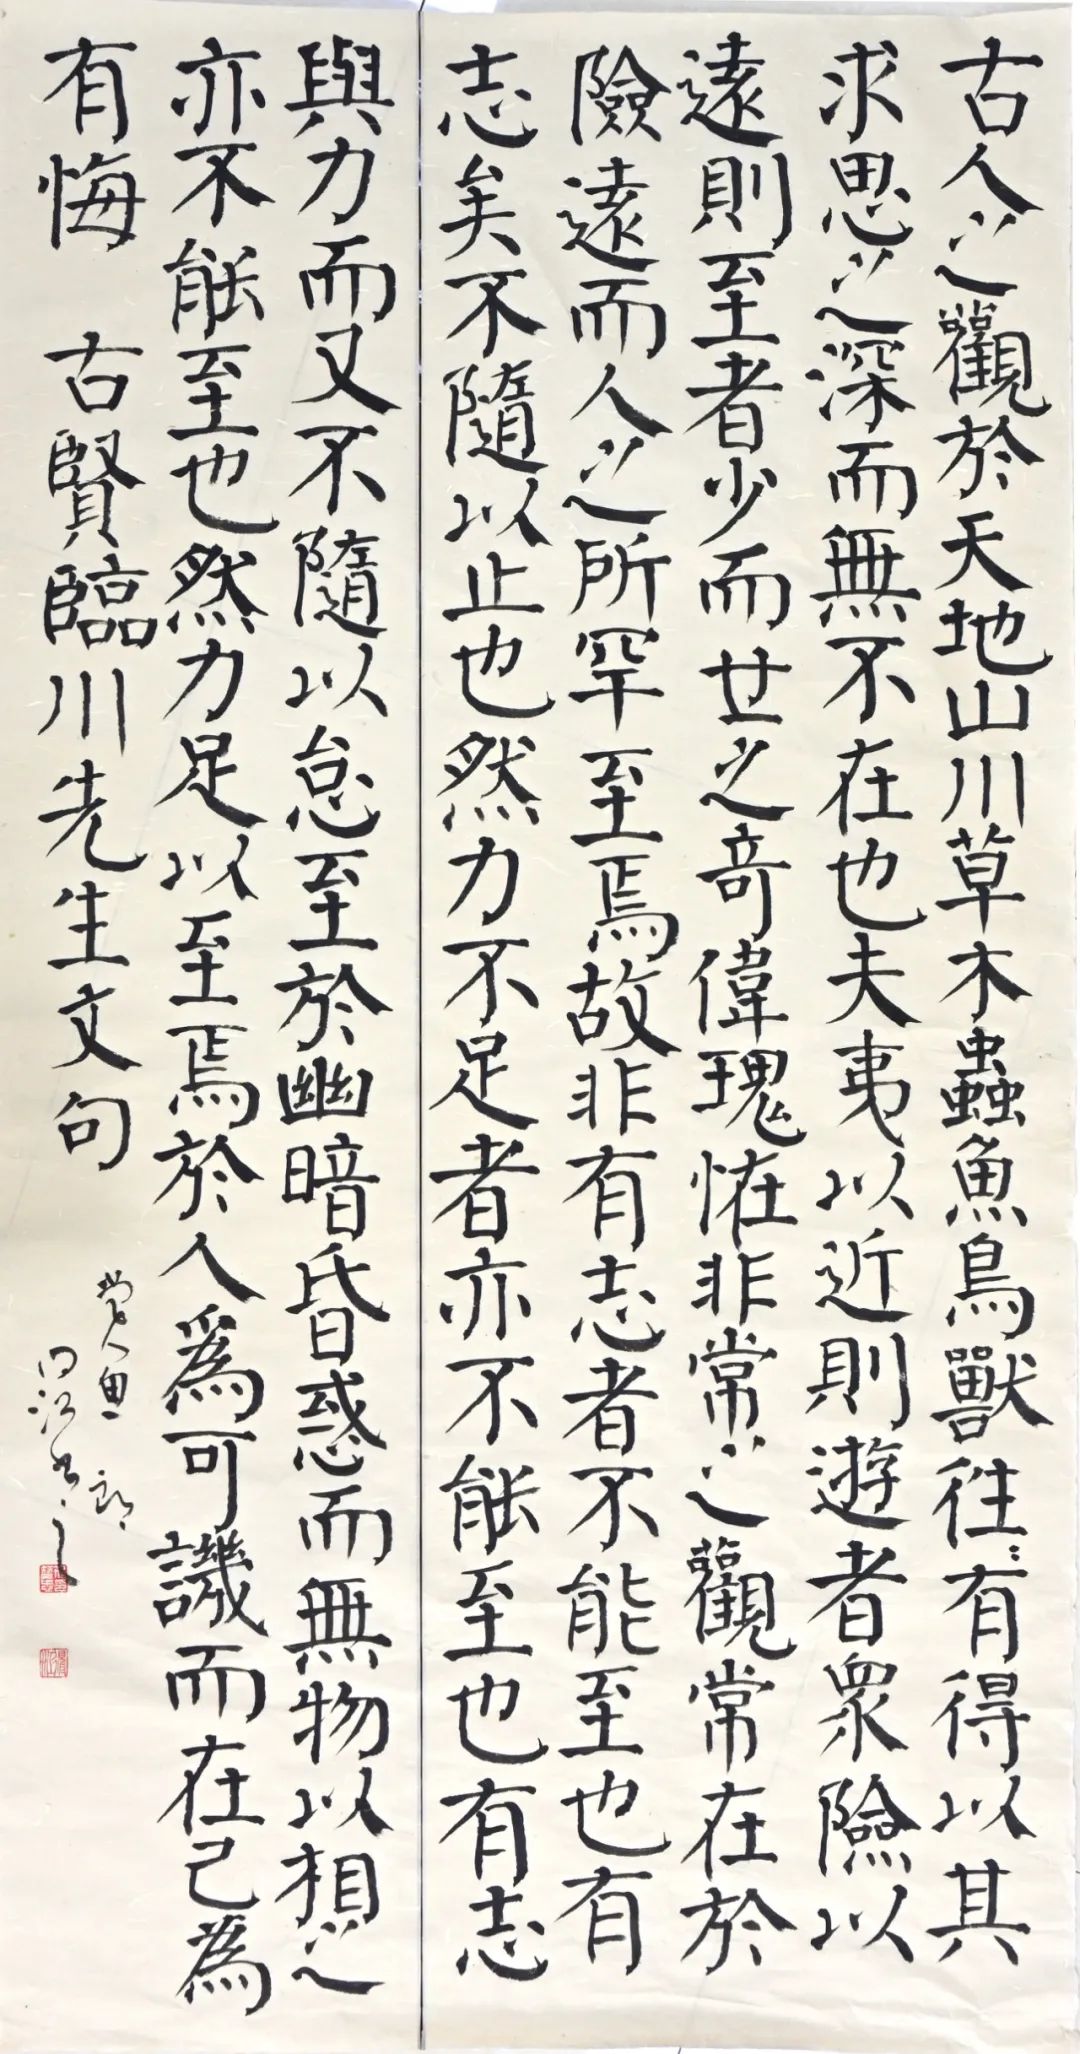 古人之觀於天地山川草木蟲魚鳥獸往〻有得以其
求思之深而無不在也夫夷以近則遊者眾險以
遠則至者少而世之奇偉瑰恠非常之觀常在於
險遠而人之所罕至焉故非有志者不能至也有
志矣不隨以止也然力不足者亦不能至也有志
與力而又不隨以怠至於幽暗昏惑而無物以相之
亦不能至也然力足以至焉於人為可譏而在己為
有悔 古賢臨川先生文句